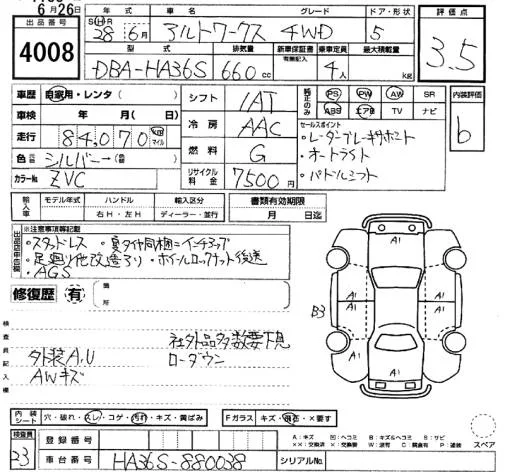 6月26日
出品番号
4008
年式 車名 グレード ドア・形状 評価点
S H R 28年6月 アルトワークス 4WD 5 3.5
型式 排気量 新車保証書 有無記入 乗車定員 最大積載量
DBA-HA36S 660cc 4人 kg
車歴 自家用・レンタ( )
車検 年 月( 日)
走行 84,070 km マイル
色 シルバー→( 色)
カラーNo ZVC
シフト IAT
冷房 AAC
燃料 G
リサイクル料金 7500円
純正のみ PS PW AW SR
ABS エアB TV ナビ
内装評価 b
セールスポイント
・レーダーブレーキサポート
・オートライト
・パドルシフト
輸入車 モデル年式 ハンドル 輸入区分 書類有効期限
右H・左H ディーラー・並行 月 日迄
出品店申告欄
※注意事項等記載
・スタッドレス ・夏タイヤ同梱=インチアップ
・足廻り他改造アリ ・ホイールロックナット後送
・AGS
修復歴 有 箇所
検査員記入欄
社外品多数要下見
外装A,U ローダウン
AWキズ
A1
A1
A1 A1
A1
B3
A1 A1
A1
内装シート 穴・破れ・スレ・コゲ・汚れ・キズ・黄ばみ Fガラス キズ・飛石・×要す
スペア
A:キズ U:ヘコミ B:キズ&ヘコミ S:サビ
××:交換済 ×:要交換 W:波有 C:腐食有 P:塗装
検査員 23
登録番号
車台番号 HA36S-880038 シリアルNo.